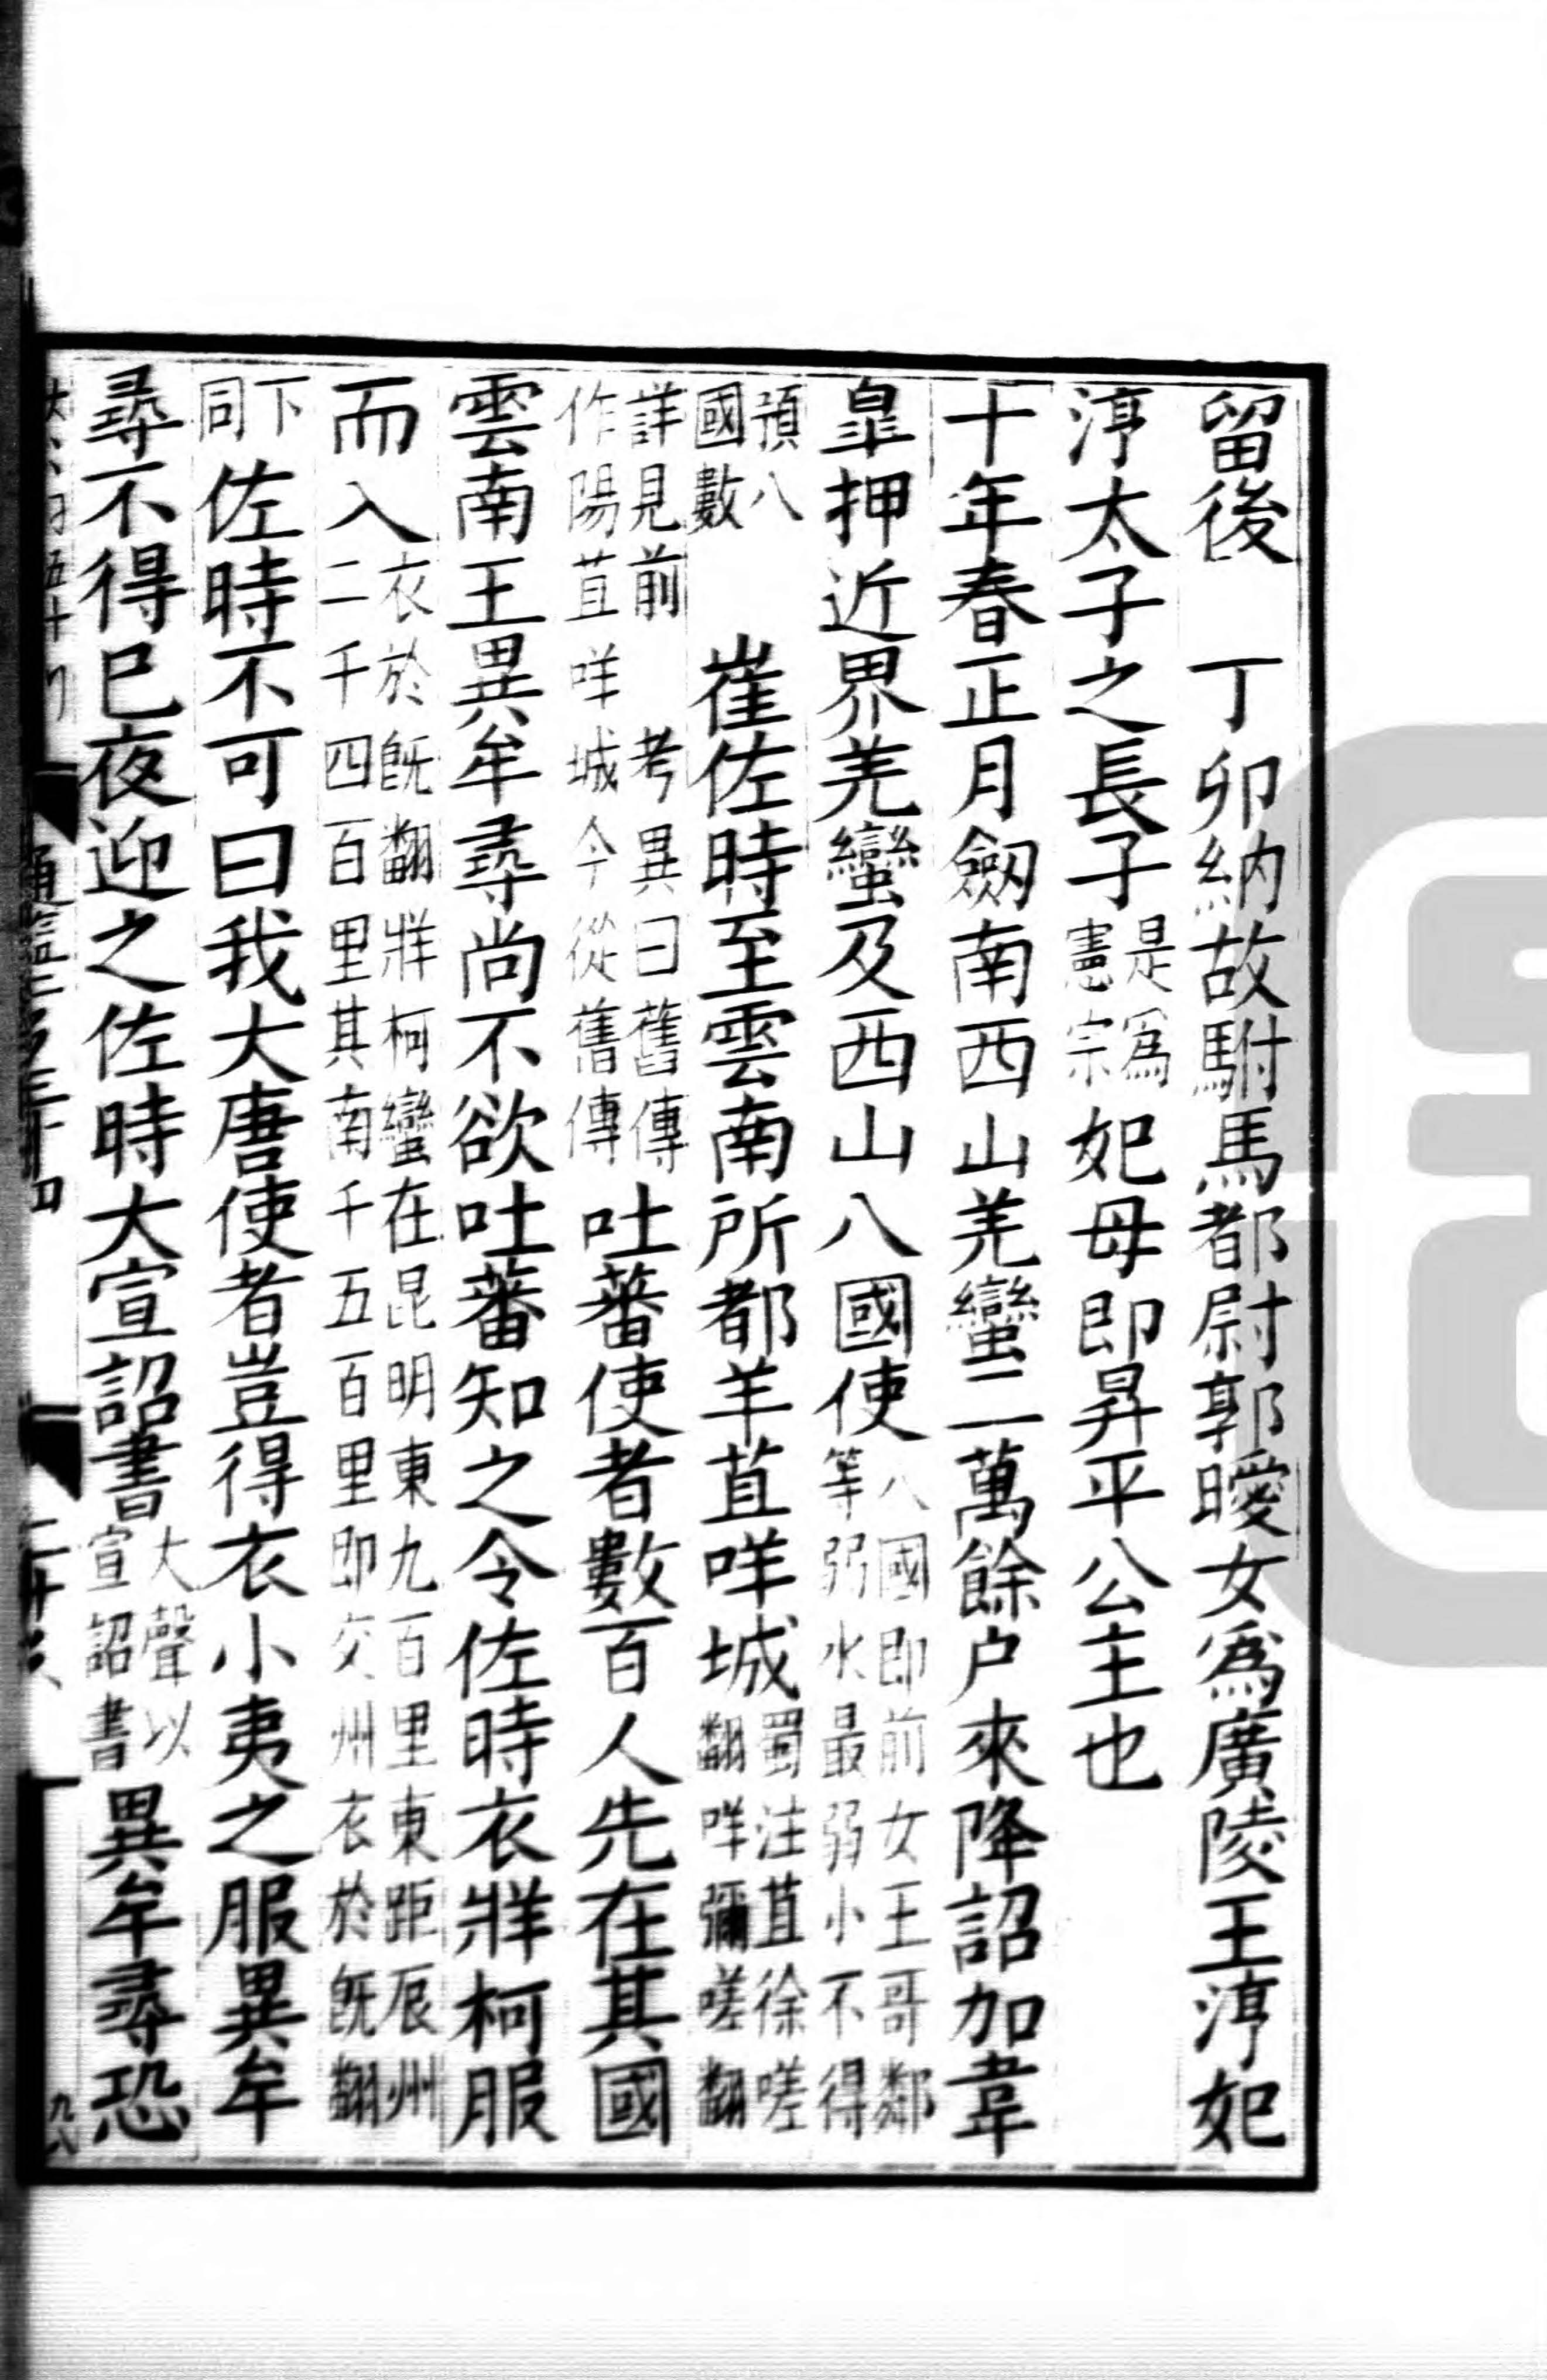 留後　丁卯納故駙馬都尉郭曖女爲廣陵王淳妃
淳太子之長子是爲憲宗妃母即昇平公主也
十年春正月劒南西山羌蠻二萬餘户來降詔加韋
皐押近界羌蠻及西山八國使八國即前女王哥鄰等弱水最弱小不得
預八國數　崔佐時至雲南所都羊苴咩城蜀注苴徐嗟翻咩彌嗟翻
詳見前　考異曰舊傳作陽苴咩城今從舊傳吐蕃使者數百人先在其國
雲南王異牟尋尚不欲吐蕃知之令佐時衣牂柯服
而入衣於旣翻牂柯蠻在昆明東九百里東距辰州二千四百里其南千五百里即交州衣於旣翻
下同佐時不可曰我大唐使者豈得衣小夷之服異牟
尋不得巳夜迎之佐時大宣詔書大聲以宣詔書異牟尋恐